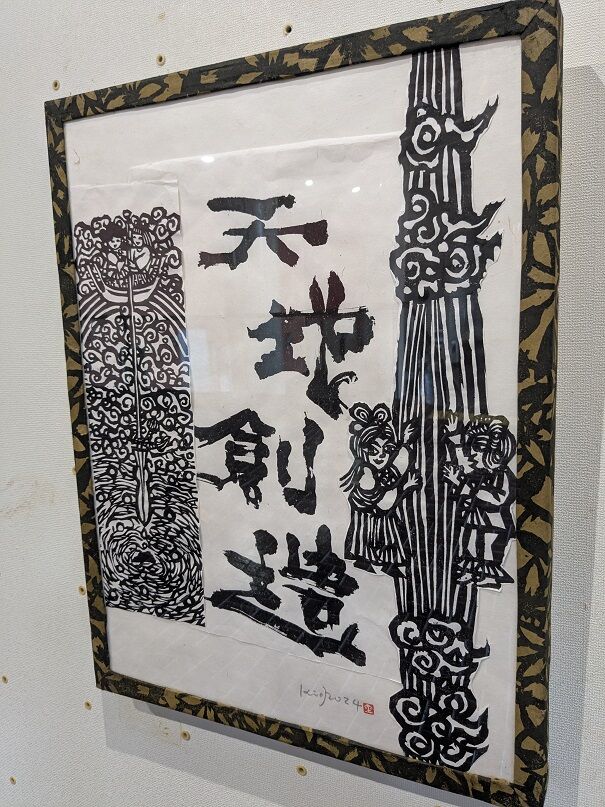 天
地
創
造
2024